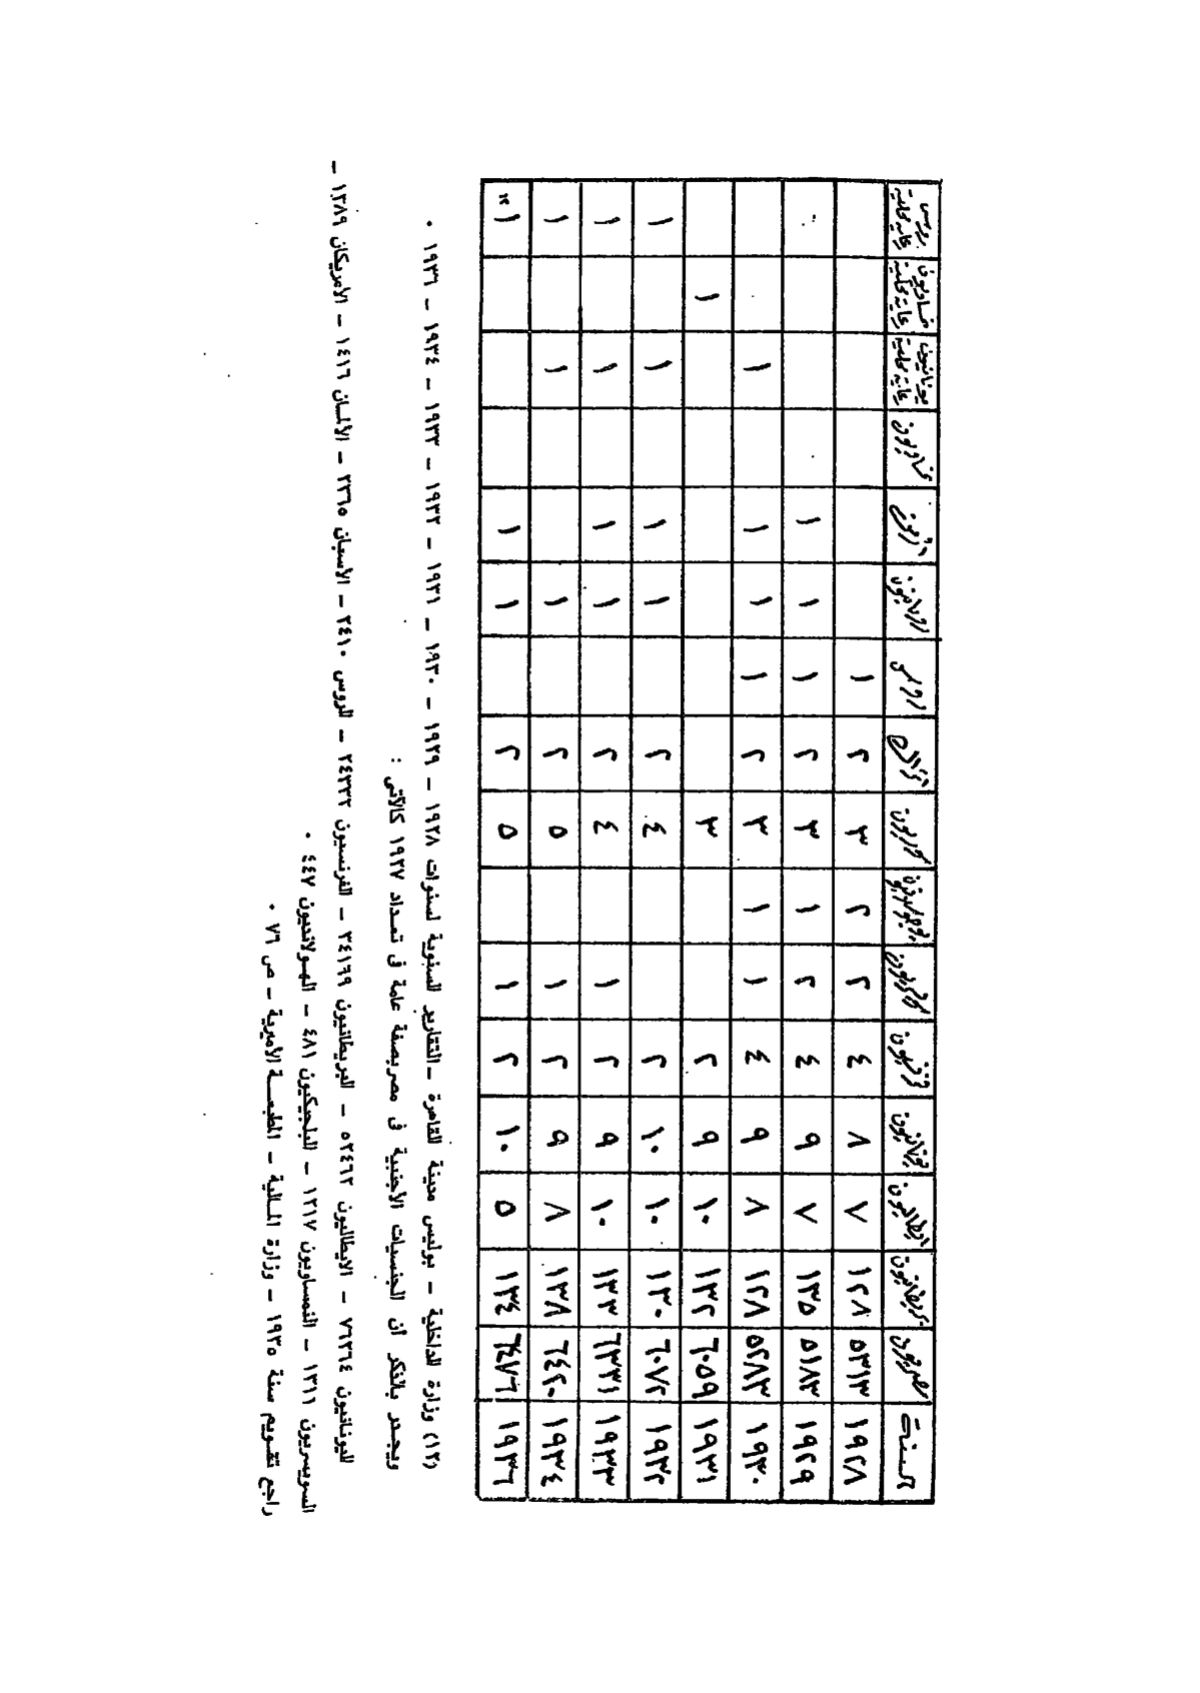 السنة مصريون بريطانيون ايطاليون يونانيون فرنسيون سوريون أتراك روس رومانيون أرمن نمساويون يونانيون رعاية محلية نمساويون رعاية محلية روس رعاية محلية
١٩٢٨ ٥٣١٣ ١٢٨ ٧ ٨ ٤ ٢ ٢ ٣ ٢ ١
١٩٢٩ ٥١٨٣ ١٣٥ ٧ ٩ ٤ ٢ ١ ٣ ٢ ١ ١ ١
١٩٣٠ ٥٢٨٣ ١٢٨ ٨ ٩ ٤ ١ ١ ٣ ٢ ١ ١ ١ ١
١٩٣١ ٦٠٥٩ ١٣٢ ١٠ ٩ ٢ ٣ ١
١٩٣٢ ٦٠٧٢ ١٣٠ ١٠ ١٠ ٢ ٤ ٢ ١ ١ ١ ١
١٩٣٣ ٦٣٣١ ١٣٣ ١٠ ٩ ٢ ١ ٤ ٢ ١ ١ ١ ١
١٩٣٤ ٦٤٢٠ ١٣٨ ٨ ٩ ٢ ١ ٥ ٢ ١ ١ ١
١٩٣٦ ٦٤٧٦ ١٣٤ ٥ ١٠ ٢ ١ ٥ ٢ ١ ١ ١
(١٢) وزارة الداخلية – بوليس مدينة القاهرة – التقارير السنوية لسنوات ١٩٢٨ – ١٩٢٩ – ١٩٣٠ – ١٩٣١ – ١٩٣٢ – ١٩٣٣ – ١٩٣٤ – ١٩٣٦ .
ويجدر بالذكر أن الجنسيات الأجنبية فى مصر بصفة عامة فى تعداد ١٩٢٧ كالآتى :
اليونانيون ٧٦٢٦٤ – الايطاليون ٥٢٤٦٢ – البريطانيون ٣٤١٦٩ – الفرنسيون ٢٤٣٣٢ – الروس ٢٤١٠ – الأسبان ٢٣٦٥ – الألمان ١٤١٦ – الأمريكان ١٣٨٩ –
السويسريون ١٣١١ – النمساويون ١٢١٧ – البلجيكيون ٤٨١ – الهولانديون ٤٤٧ .
راجع تقويم سنة ١٩٣٥ – وزارة المالية – المطبعة الأميرية – ص ٧٦ .